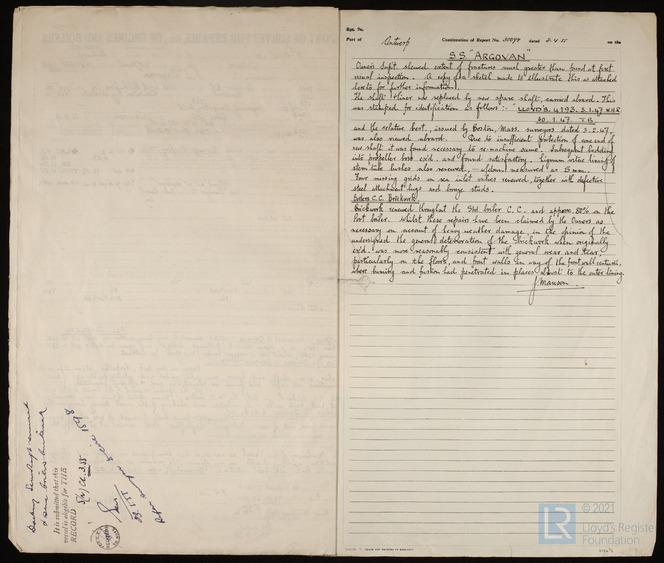 Rpt. No.
Part of Antwerp Continuation of Report No. 30094 dated 2.4.55 on the
S.S "ARGOVAN"
Owners Supt. showed extent of fractures much greater than found at first
visual inspection. A copy of a sketch made to illustrate this is attached
hereto for further information.
The shaft & liner was replaced by new spare shaft, carried aboard. This
was stamped for identification as follows :- LLOYD'S. 4193. 3.1.47. W.H.R
30.1.47. T.B
and the relative cert., issued by Boston, Mass. surveyors dated 3.2.47,
was also viewed aboard. Due to insufficient protection of cone end of
new shaft it was found necessary to re-machine same. Subsequent bedding
into propeller boss exd. and found satisfactory. Lignum vitae lining of
stern tube bushes also renewed, - weardown measured as 5 mm.
Four missing grids on sea inlet valves renewed, together with defective
steel attachment lugs and bronze studs.
Boilers C.C. Brickwork.
Brickwork renewed throughout the Stbd boiler C.C. and approx. 80% on the
Port boiler. Whilst these repairs have been claimed by the Owners as
necessary on account of heavy weather damage, in the opinion of the
undersigned the general deterioration of the brickwork when originally
exd. was more reasonably consistent with general wear and tear,
particularly on the floors, and front walls in way of the front wall
where burning and fusion had penetrated in places almost to the outer lining.
J. Manson
It is submitted that this
vessel is eligible for THE
RECORD
© 2021
LR
Lloyd's Register
Foundation